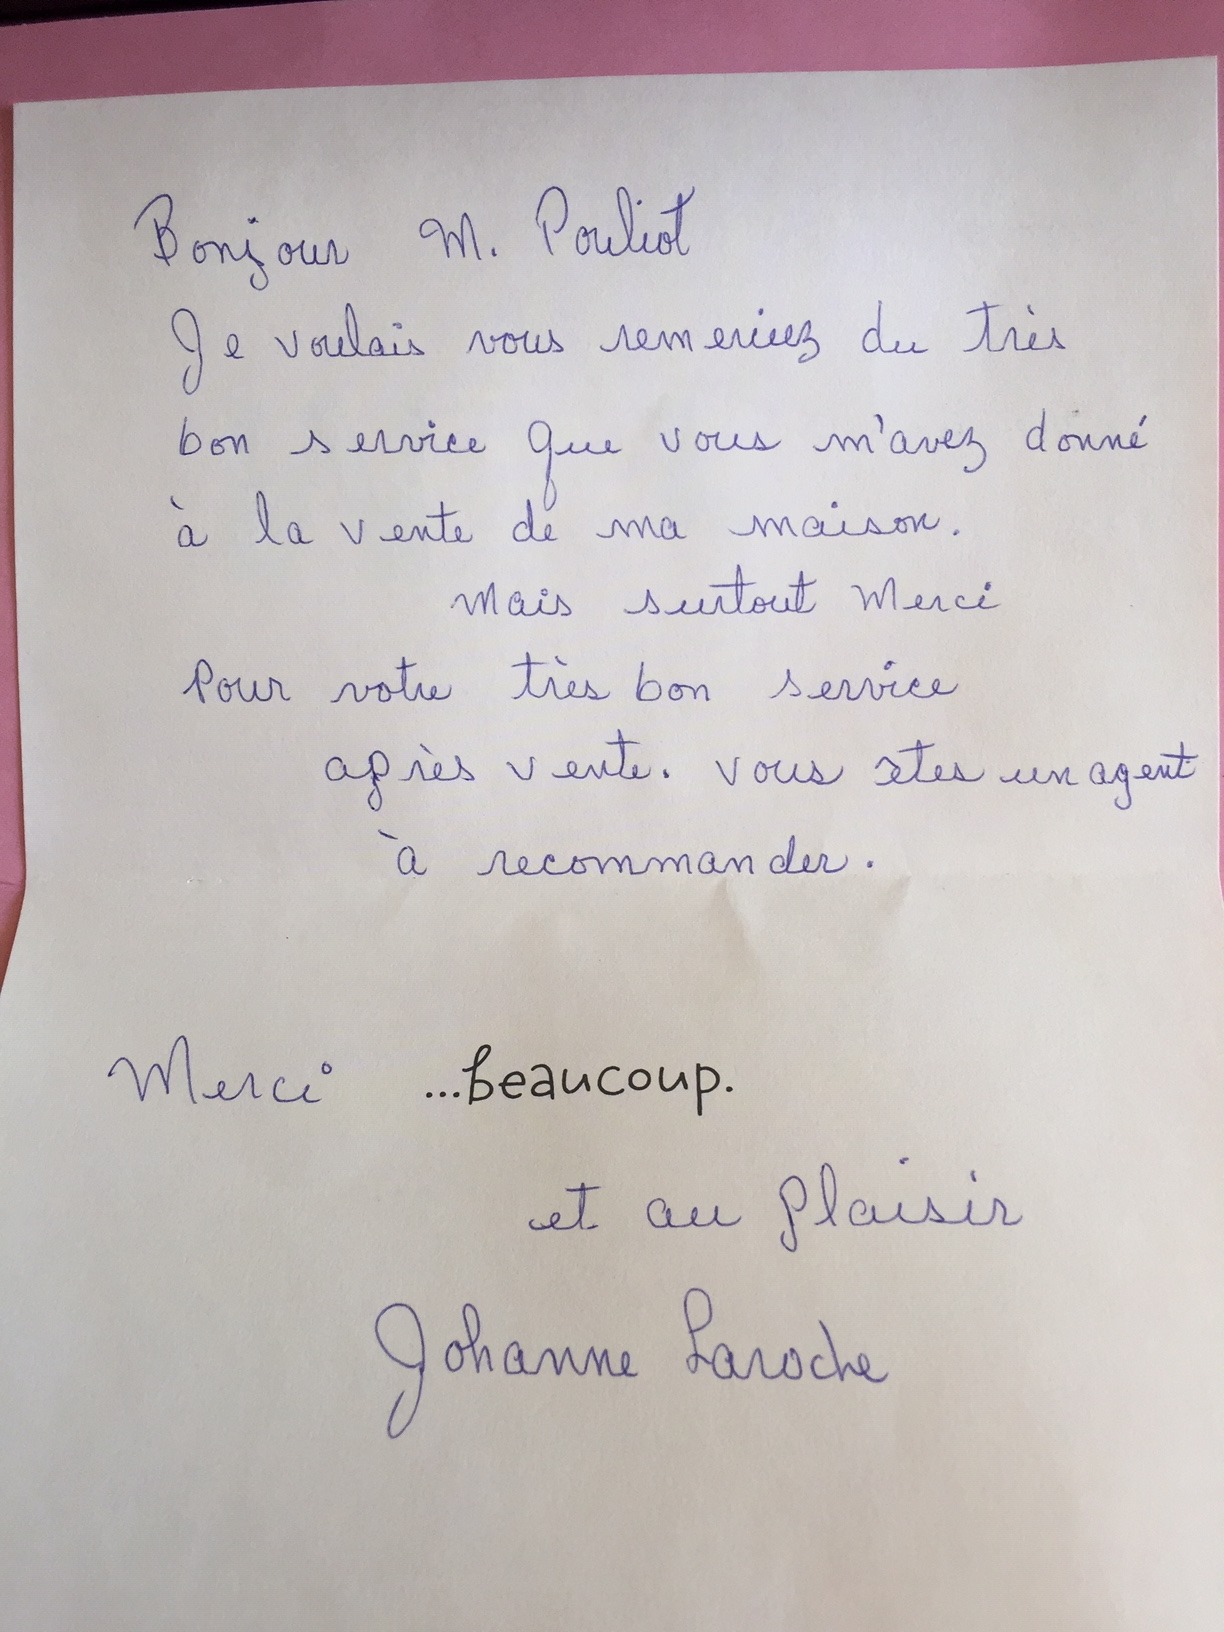 Bonjour M. Pouliot
Je voulais vous remerciez du très
bon service que vous m'avez donné
à la vente de ma maison.
mais surtout merci
Pour votre très bon service
après vente. vous êtes un agent
à recommander.
Merci ...beaucoup.
et au plaisir
Johanne Laroche